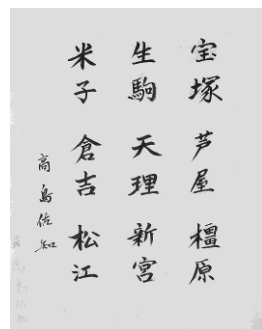 宝塚 芦屋 橿原
生駒 天理 新宮
米子 倉吉 松江
高島佐知